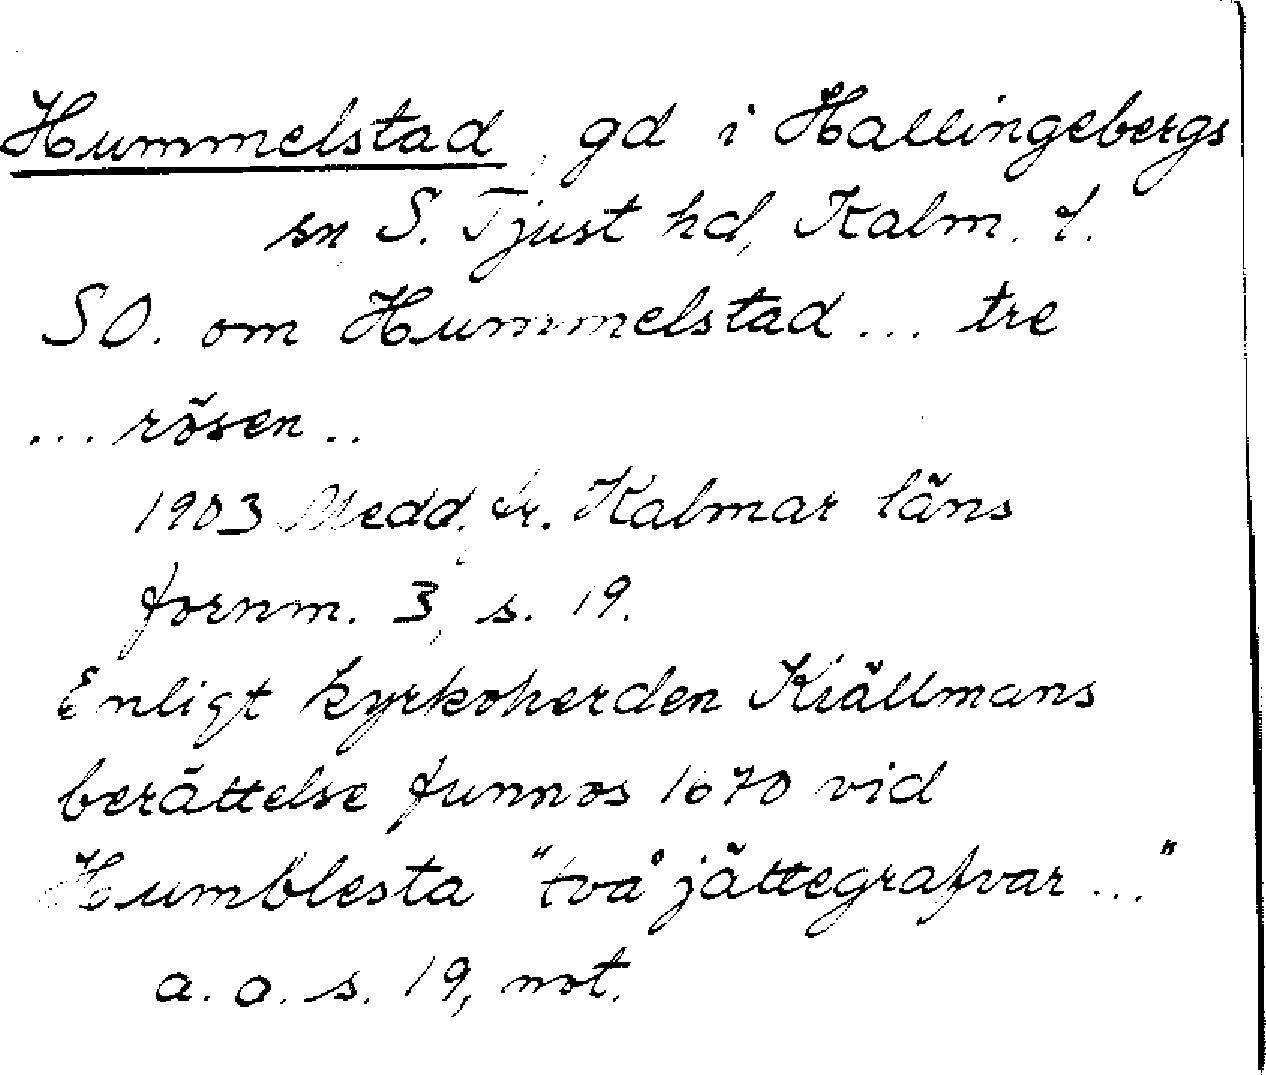 Hummelstad, gd i Hallingebergs
sn, S. Tjust hd, Kalm. l.
SO. om Hummelstad... tre
... rösen..
1903 Medd. fr. Kalmar läns
fornm. 3, s. 19.
Enligt kyrkoherden Kiällmans
berättelse funnos 1670 vid
Humblesta "två jättegrafvar..."
a. a. s. 19, not.